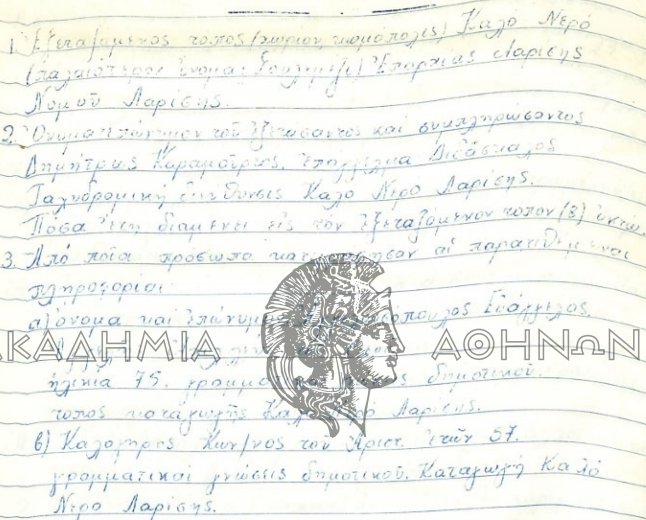 1. Ἐξεταζόμενος τόπος (χωρίον, κωμόπολις) Καλό Νερό
(παλαιότερον ὄνομα: Ἐπαρχίας Λαρίσης
Νομοῦ Λαρίσης.
2. Ὀνοματεπώνυμον τοῦ ἐξετάσαντος καί συμπληρώσαντος
Δημήτριος ἐπάγγελμα Διδάσκαλος
Ταχυδρομική διεύθυνσις Καλό Νερό Λαρίσης.
Πόσα ἔτη διαμένει εἰς τόν ἐξεταζόμενον τόπον (8) ὀκτώ.
3. Ἀπό ποῖα πρόσωπα αἱ παρατιθέμεναι
πληροφορίαι
α) ὄνομα καί ἐπώνυμον Εὐάγγελος.
ΑΚΑΔΗΜΙΑ ΑΘΗΝΩΝ
ἡλικία 75. δημοτικοῦ.
τόπος καταγωγῆς Λαρίσης.
β) Καλόγηρος Κων/νος τοῦ Ἀριστ. ἐτῶν 57.
γραμματικαί γνώσεις δημοτικοῦ. Καταγωγή Καλό
Νερό Λαρίσης.